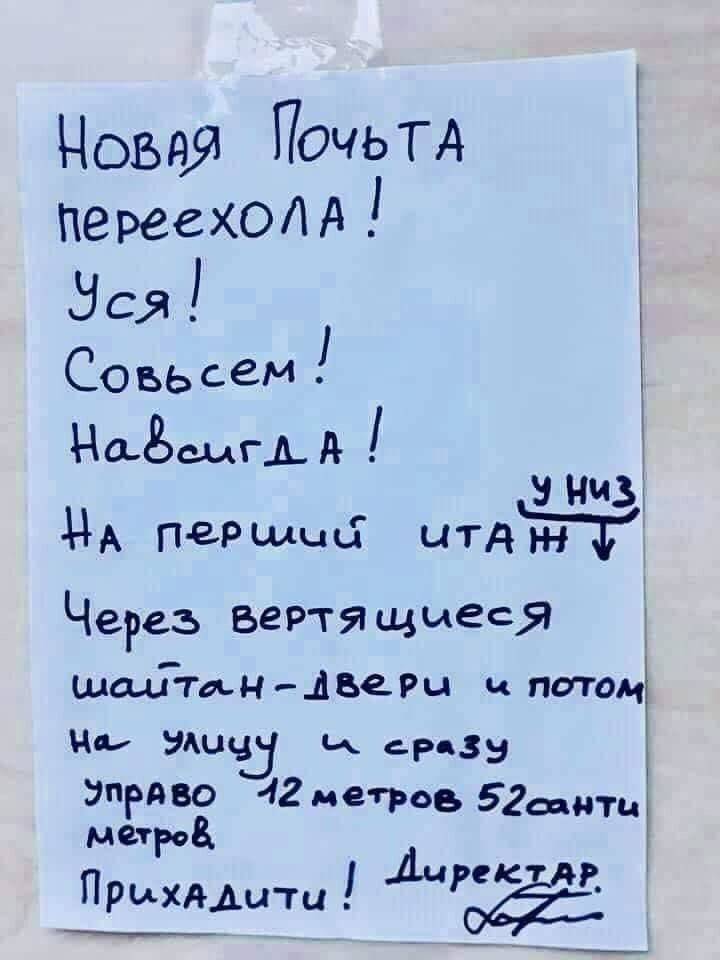 Новая Почьта
переехола!
Уся!
Совьсем!
Навсигда!
у низ
На перший итаж ↓
Через вертящиеся
шайтан-двери и потом
на улицу и сразу
управо 12 метров 52 санти
метров
Прихадити! Директар.